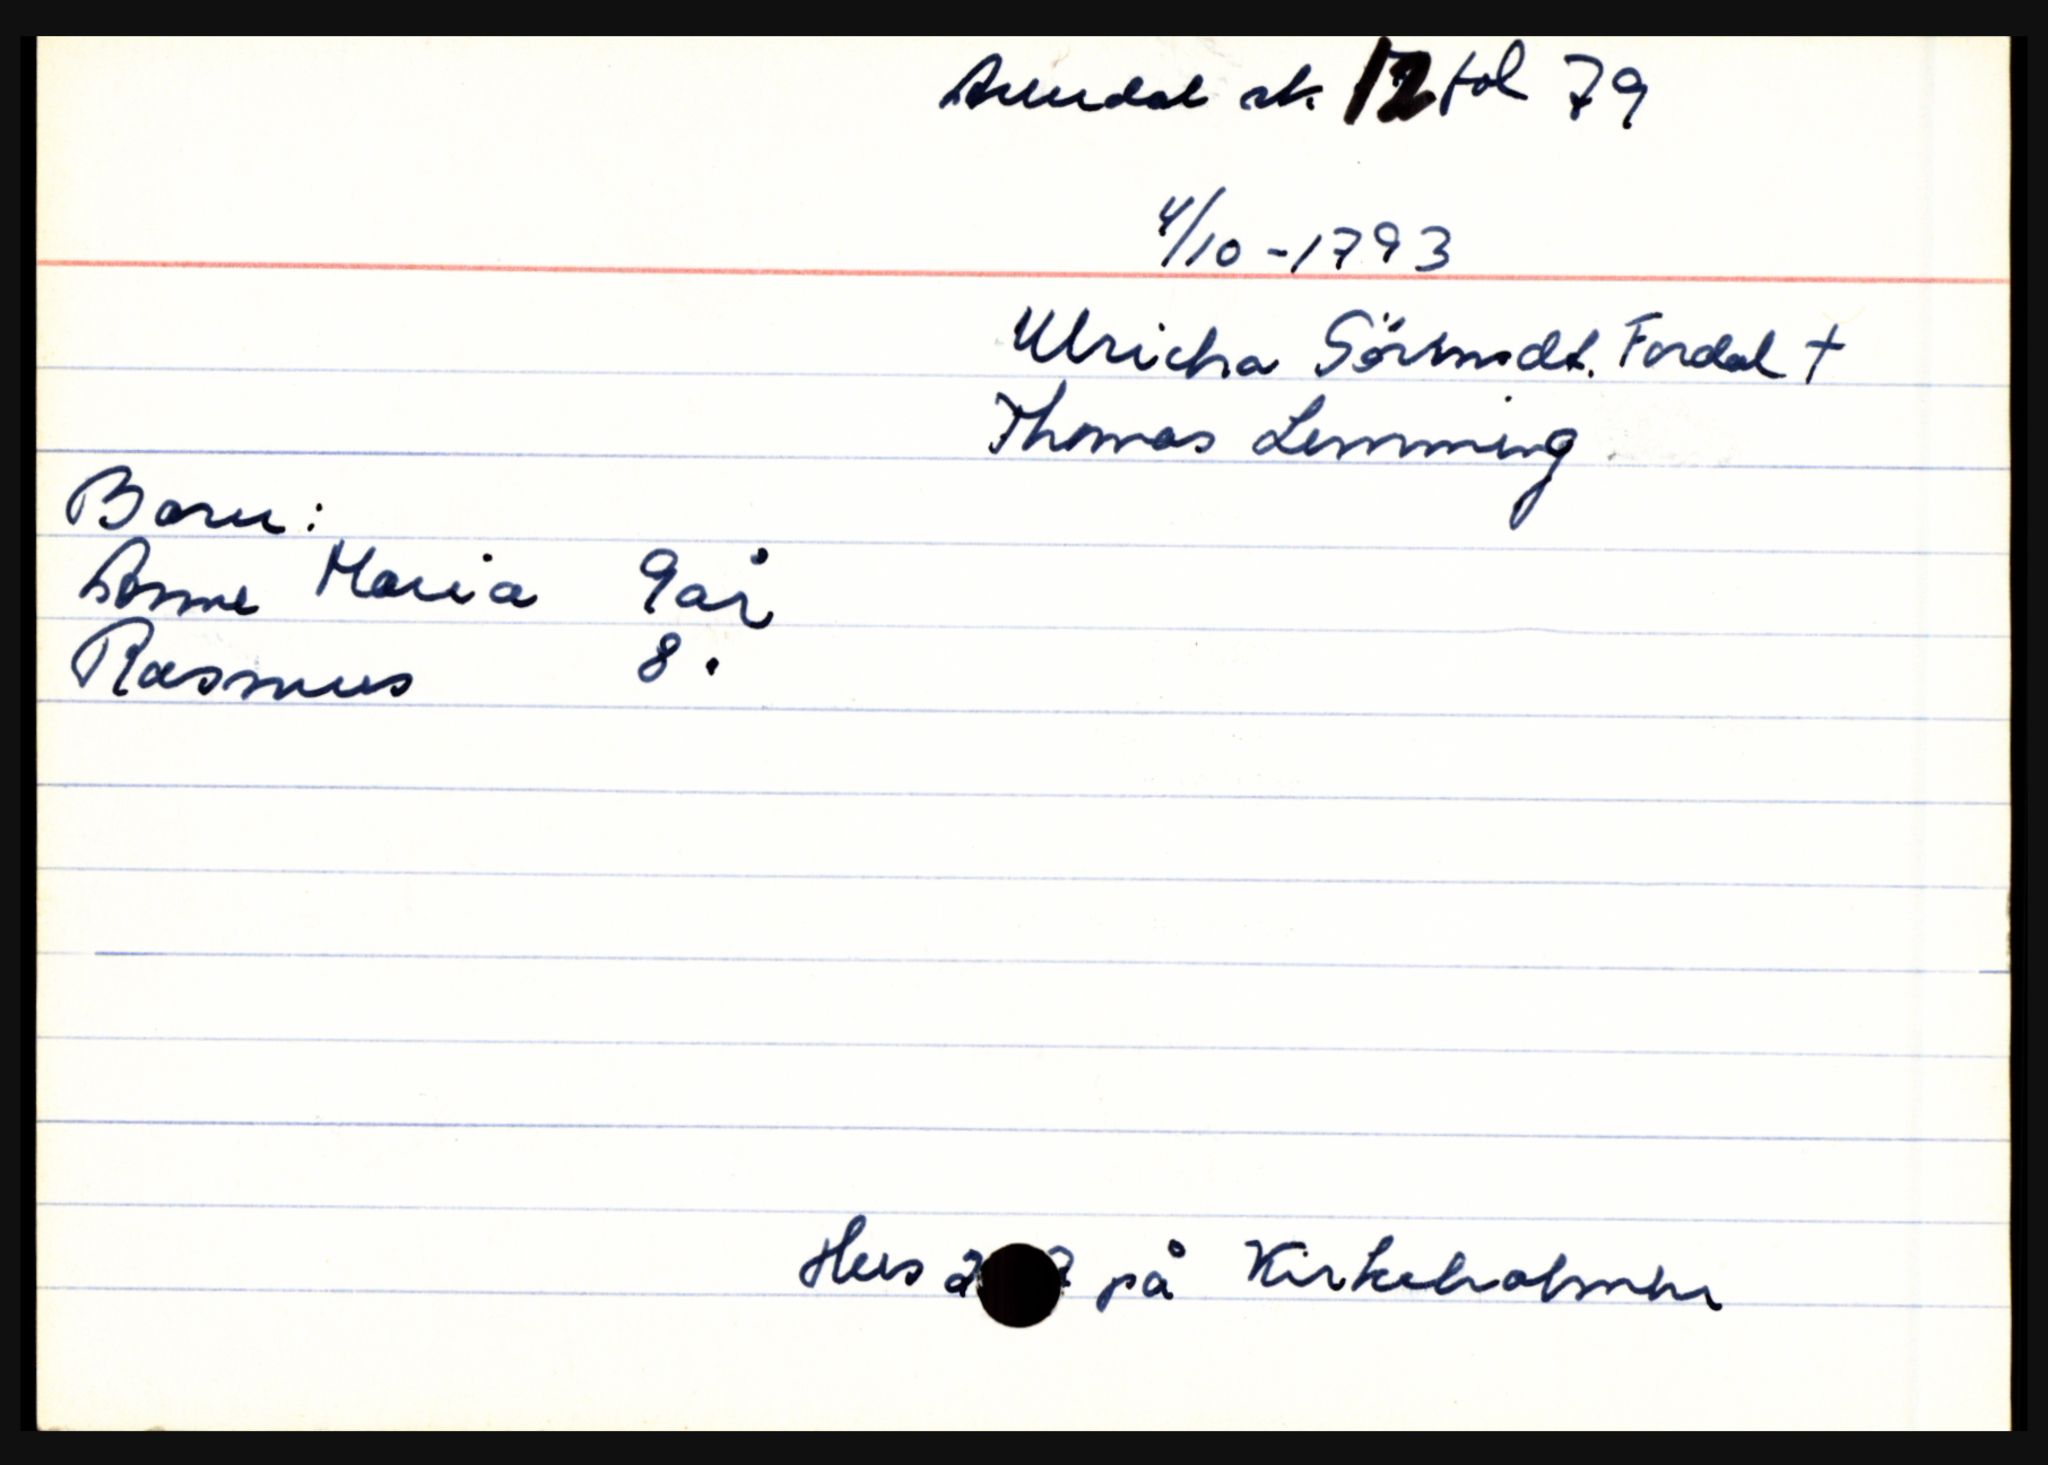 Arendal sk 12 fol 79
4/10 - 1793
Ulricha Sörensdt. Fordal +
Thomas Lemming
Barn:
Anne Maria 9 år
Rasmus 8.
Hus på Kirkeholmen